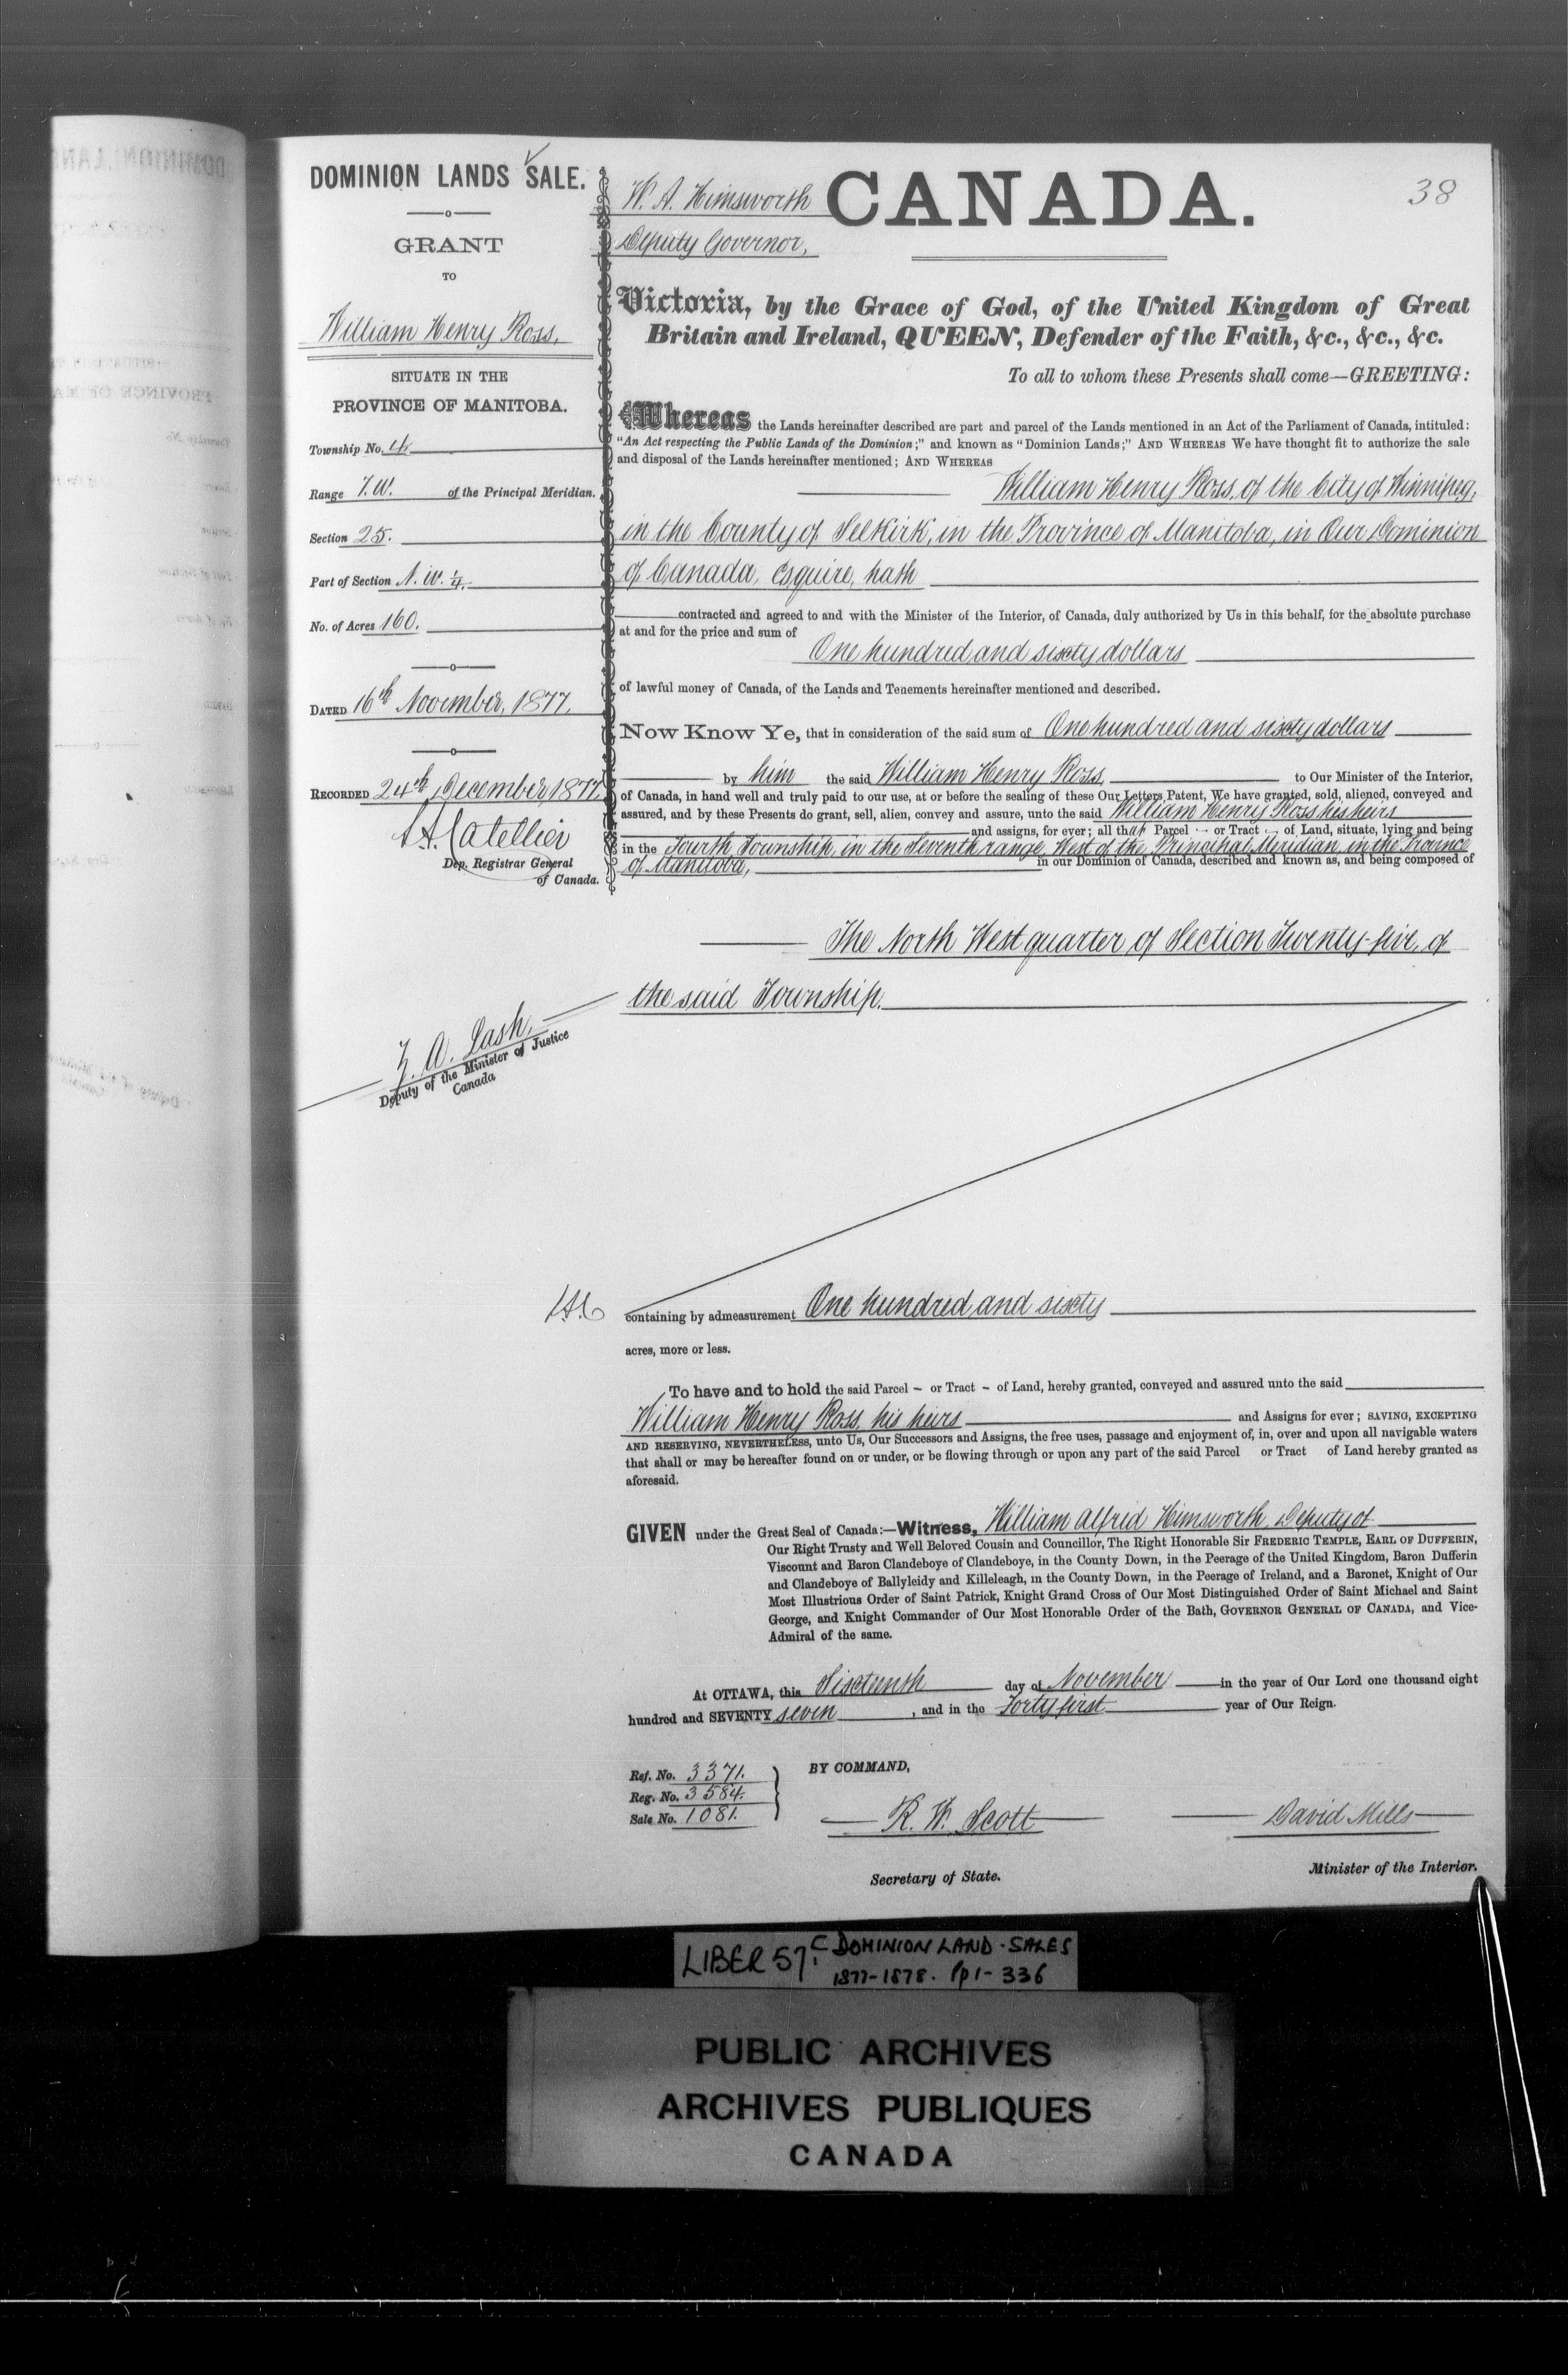 DOMINION LANDS SALE.
GRANT
TO
William Henry Ross,
SITUATE IN THE
PROVINCE OF MANITOBA.
Township No. 4.
Range 7. W. of the Principal Meridian.
Section 25.
Part of Section N. W. 1/4.
No. of Acres 160.
DATED 16th November, 1877.
RECORDED 24th December, 1877.
L. A. Catellier
Dep. Registrar General
of Canada.
Z. A. Lash,
Deputy of the Minister of Justice
Canada
W. A. Himsworth
Deputy Governor,
CANADA.
38
Victoria, by the Grace of God, of the United Kingdom of Great
Britain and Ireland, QUEEN, Defender of the Faith, &c., &c., &c.
To all to whom these Presents shall come—GREETING:
Whereas the Lands hereinafter described are part and parcel of the Lands mentioned in an Act of the Parliament of Canada, intituled:
"An Act respecting the Public Lands of the Dominion;" and known as "Dominion Lands;" AND WHEREAS We have thought fit to authorize the sale
and disposal of the Lands hereinafter mentioned; AND WHEREAS
William Henry Ross, of the City of Winnipeg,
in the County of Selkirk, in the Province of Manitoba, in Our Dominion
of Canada, Esquire, hath
contracted and agreed to and with the Minister of the Interior, of Canada, duly authorized by Us in this behalf, for the absolute purchase
at and for the price and sum of
One hundred and sixty dollars
of lawful money of Canada, of the Lands and Tenements hereinafter mentioned and described.
Now Know Ye, that in consideration of the said sum of One hundred and sixty dollars
by him the said William Henry Ross, to Our Minister of the Interior,
of Canada, in hand well and truly paid to our use, at or before the sealing of these Our Letters Patent, We have granted, sold, aliened, conveyed and
assured, and by these Presents do grant, sell, alien, convey and assure, unto the said William Henry Ross his heirs
and assigns, for ever; all that Parcel - or Tract - of Land, situate, lying and being
in the Fourth Township, in the Seventh range, West of the Principal Meridian, in the Province
of Manitoba, in our Dominion of Canada, described and known as, and being composed of
The North West quarter of Section Twenty-five, of
the said Township.
L.A.C
containing by admeasurement One hundred and sixty
acres, more or less.
To have and to hold the said Parcel - or Tract - of Land, hereby granted, conveyed and assured unto the said
William Henry Ross, his heirs and Assigns for ever; SAVING, EXCEPTING
AND RESERVING, NEVERTHELESS, unto Us, Our Successors and Assigns, the free uses, passage and enjoyment of, in, over and upon all navigable waters
that shall or may be hereafter found on or under, or be flowing through or upon any part of the said Parcel or Tract of Land hereby granted as
aforesaid.
GIVEN under the Great Seal of Canada:—Witness, William Alfrid Himsworth, Deputy of
Our Right Trusty and Well Beloved Cousin and Councillor, The Right Honorable Sir FREDERIC TEMPLE, EARL OF DUFFERIN,
Viscount and Baron Clandeboye of Clandeboye, in the County Down, in the Peerage of the United Kingdom, Baron Dufferin
and Clandeboye of Ballyleidy and Killeleagh, in the County Down, in the Peerage of Ireland, and a Baronet, Knight of Our
Most Illustrious Order of Saint Patrick, Knight Grand Cross of Our Most Distinguished Order of Saint Michael and Saint
George, and Knight Commander of Our Most Honorable Order of the Bath, GOVERNOR GENERAL OF CANADA, and Vice-
Admiral of the same.
At OTTAWA, this Sixteenth day of November in the year of Our Lord one thousand eight
hundred and SEVENTY seven, and in the Forty first year of Our Reign.
Ref. No. 3371.
Reg. No. 3584.
Sale No. 1081.
BY COMMAND,
R. W. Scott
Secretary of State.
David Mills
Minister of the Interior.
LIBER 57C. DOMINION LAND - SALES
1877-1878. Pp 1-336
PUBLIC ARCHIVES
ARCHIVES PUBLIQUES
CANADA